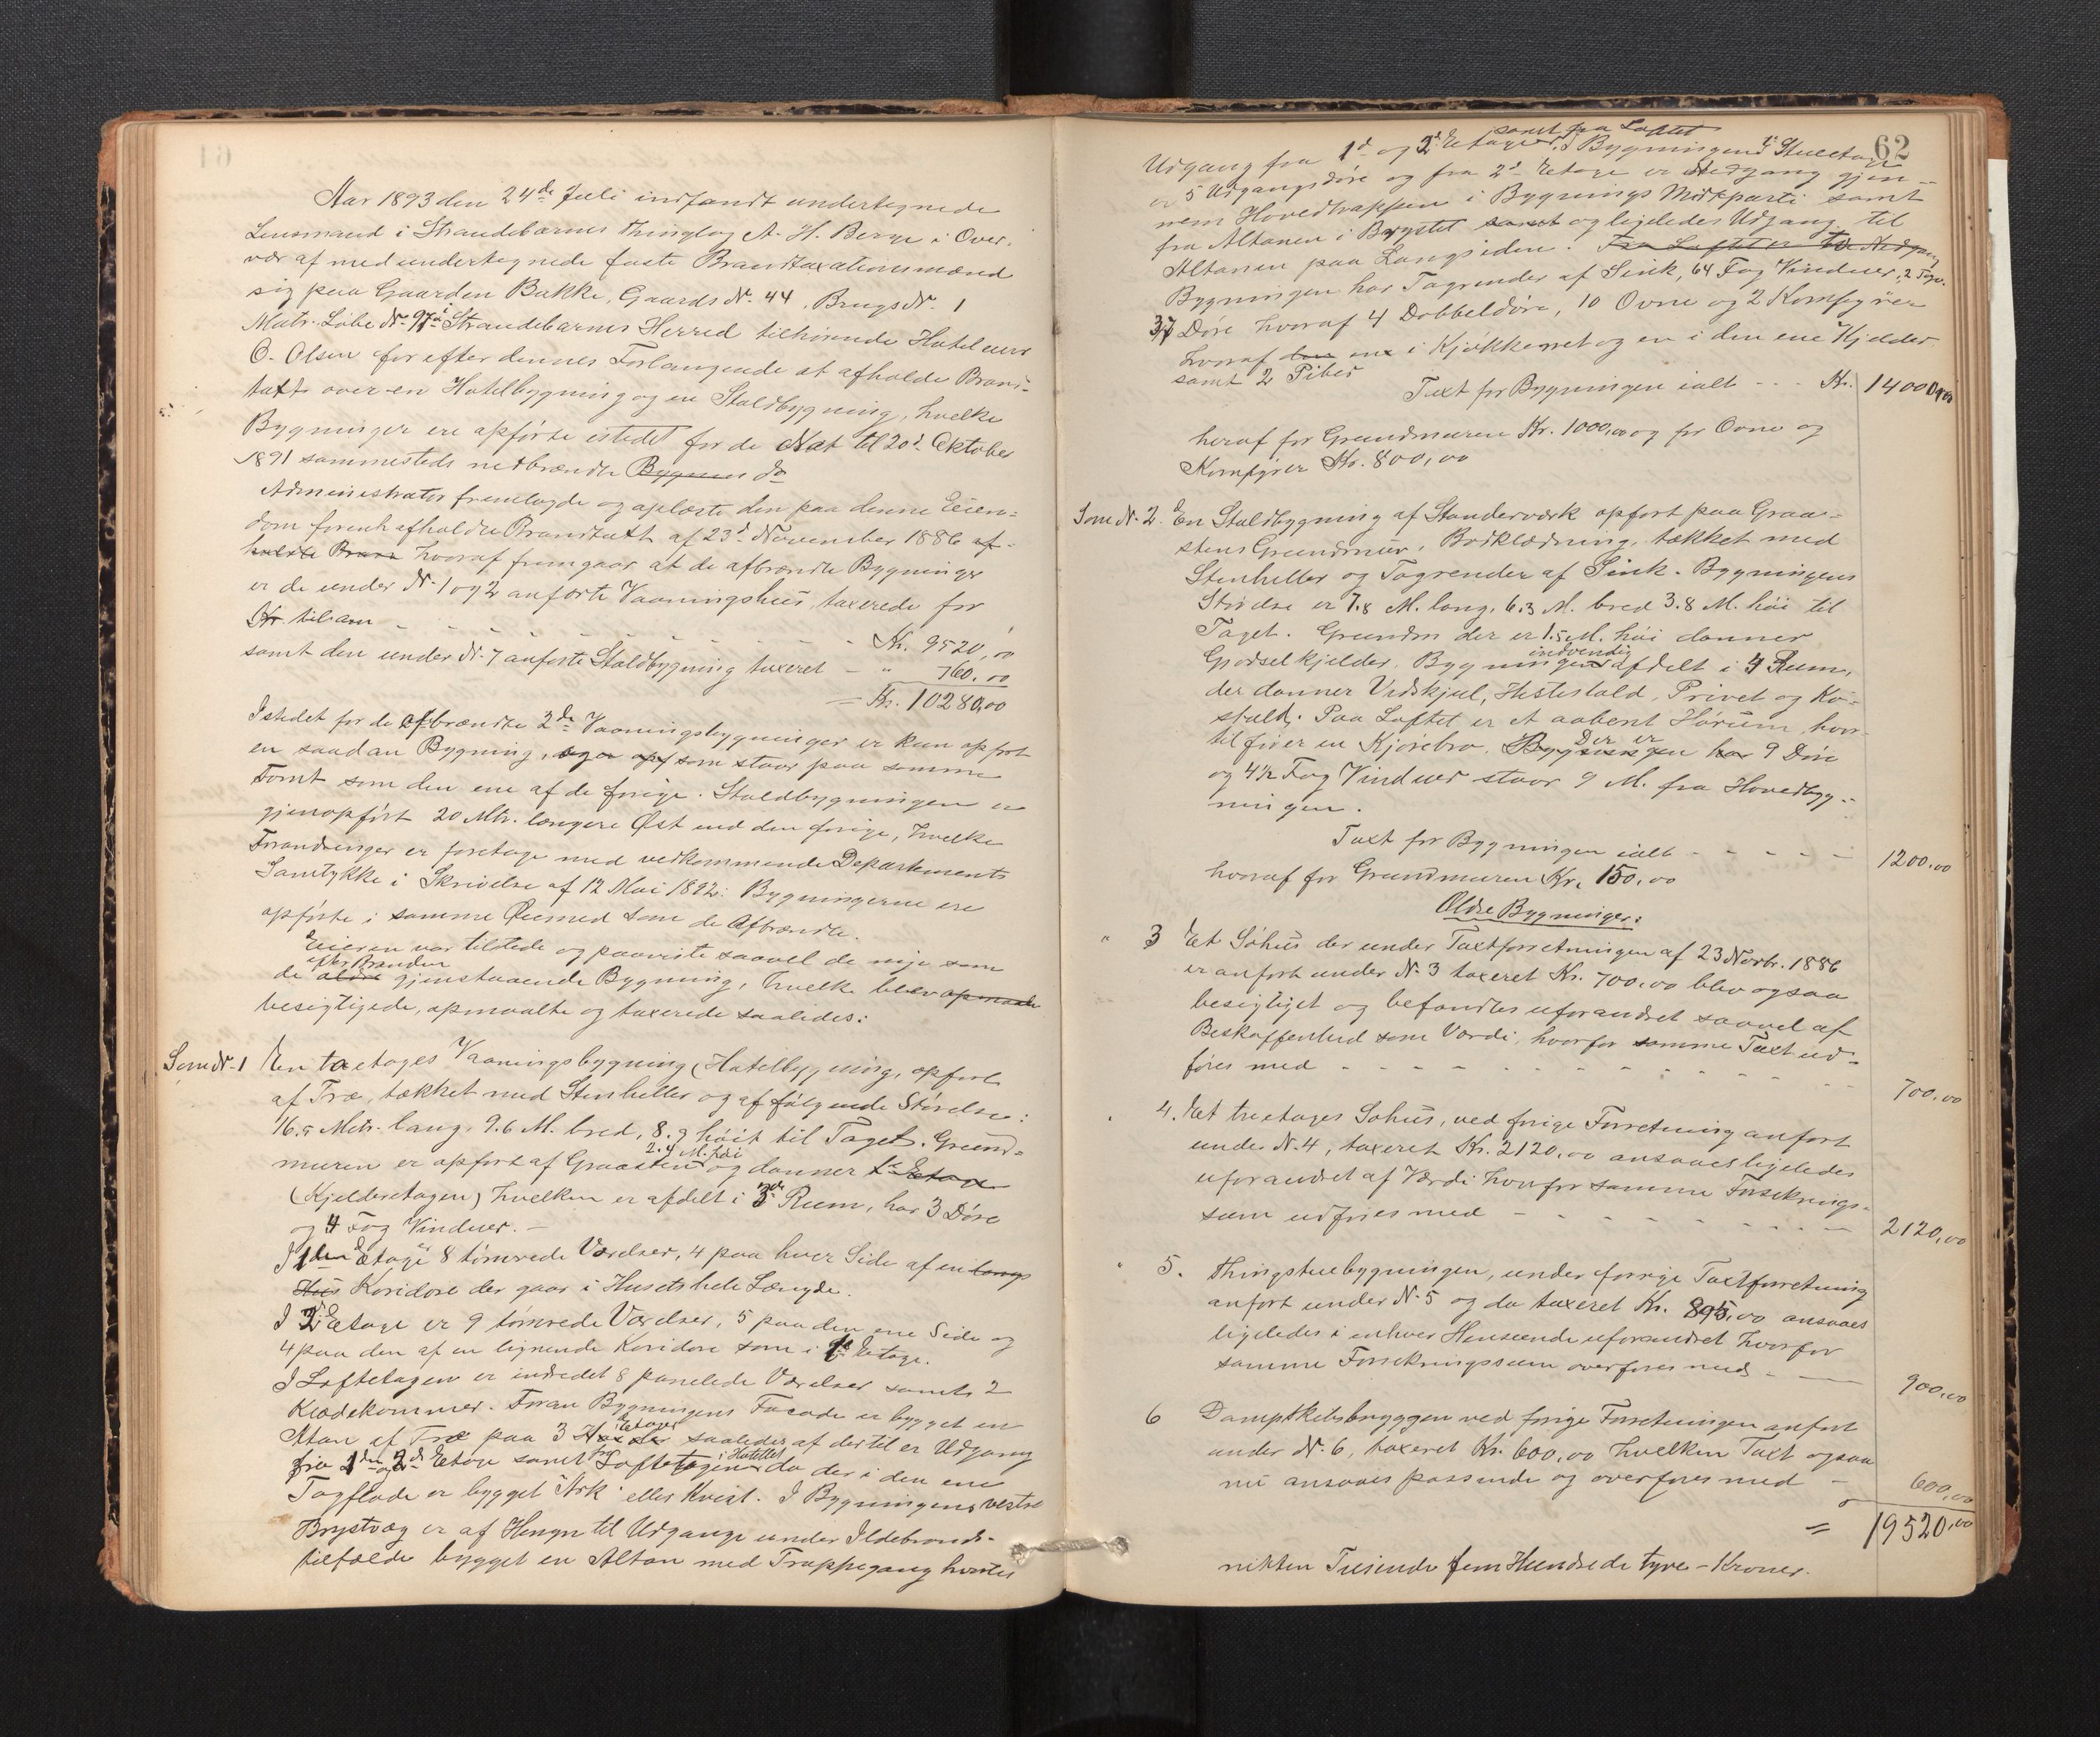 61
Aar 1893 den 24de Juli indfandt undertegnede
Lensmand i Strandebarms Thinglag A. H. Berge i Over-
vær af medundertegnede faste Brandtaxationsmænd
sig paa Gaarden Bakke, Gaards No. 44, Brugs No. 1
Matr. Løbe No. 97a Strandebarms Herred tilhørende Hoteleier
O. Olsen for efter dennes Forlangende at afholde Brand-
taxt over en Hotelbygning og en Staldbygning, hvilke
Bygninger ere opførte istedet for de Nat til 20d Oktober
1891 sammesteds nedbrændte Bygninger do
Administrator fremlagde og oplæste den paa denne Eien-
dom forrent afholdte Brandtaxt af 23d November 1886 af-
holdte Brann hvoraf fremgaar at de afbrændte Bygninger
er de under No. 1 og 2 anførte Vaaningshus, taxerede for
Kr. tilsam - - - - - Kr. 9520,00
samt den under No. 7 anførte Staldbygning taxeret - " 760,00
= Kr. 10280,00
Istedet for de afbrændte 2de Vaaningsbygninger er kun opført
en saadan Bygning, og er opf som staar paa samme
Tomt som den ene af de forige. Staldbygningen er
gjenopført 20 Mtr. længere Øst end den forige, hvilke
Forandringer er foretage med vedkommende Departements
Samtykke i Skrivelse af 12 Mai 1892. Bygningerne ere
opførte i samme Øiemed som de Afbrændte.
Eieren var tilstede og paaviste saavel de nye som
efter Branden
de ældre gjenstaaende Bygning, hvilke blev opmaalt
besigtigede, opmaalte og taxerede saaledes:
Som No. 1 En toetages Vaaningsbygning (Hotelbygning, opført
af Træ, tækket med Stenheller og af følgende Størelse:
16.5 Mtr. lang, 9.6 M. bred, 8.9 høit til Taget. Grund-
2.4 M. høi
muren er opført af Graasten og danner 1st Etage
(Kjelderetagen) hvilken er afdelt i 3de Rum, har 3 Døre
og 4 Fag Vinduer. -
I 1ste Etage er 8 tømrede Værelser, 4 paa hver Side af en langs
Hus Koridore der gaar i Husets hele Længde.
I 2d Etage er 9 tømrede Værelser, 5 paa den ene Side og
4 paa den af en lignende Koridore som i 1d Etage.
I Loftetagen er indredet 8 panelede Værelser samt 2
Klædekommer. Foran Bygningens Facade er bygget en
Altan af Træ paa 3 Etager saaledes af dertil er Udgang
fra 1ste og 2d Etage samt fra Loftetagen i Hotellet da der i den ene
Tagflade er bygget Ark eller Kvist. I Bygningens vestre
Brystvæg er af Hensyn til Udgange under Ildebrands-
tilfælde bygget en Altan med Trappegang hvortil
62
samt fra Loftet
Udgang fra 1d og 2d Etager. I Bygningens Stueetage
er 5 Udgangsdøre og fra 2d Etage er Nedgang gjen-
nem Hovedtrappen i Bygnings Midtparti samt
fra Altanen i Brystet samt og ligeledes Udgang til
Altanen paa Langsiden. Fra Loftet er to Nedgang
Bygningen har Tagrender af Sink, 64 Fag Vinduer, 2 Fags.
37 Døre hvoraf 4 Dobbeldøre, 10 Ovne og 2 Komfyrer
hvoraf den en i Kjøkkenet og en i den ene Kjelder
samt 2 Piber
Taxt for Bygningen ialt - - - Kr. 14000,00
heraf for Grundmuren Kr. 1000,00 og for Ovne og
Komfyrer Kr. 800,00
Som No. 2. En Staldbygning af Standerværk opført paa Graa-
stens Grundmur, Bordklædning, tækket med
Stenheller og Tagrender af Sink. Bygningens
Størelse er 7.8 M. lang, 6.3 M. bred 3.8 M. høi til
Taget. Grundm der er 1.5 M. høi danner
indvendig
Gjødselkjelder. Bygningen afdelt i 4 Rum,
der danner Vedskjul, Hestestald, Privet og Ko-
stald. Paa Loftet er et aabent Hørum hvor-
Der er
til fører en Kjørebro. Bygningen har 9 Døre
og 4½ Fag Vinduer staar 9 M. fra Hovedbyg-
ningen.
Taxt for Bygningen ialt - - - - - 1200,00
hvoraf for Grundmuren Kr. 150,00
Ældre Bygninger:
" 3 Et Søhus der under Taxtforretningen af 23 Novbr. 1886
er anført under No. 3 taxeret Kr. 700,00 blev ogsaa
besigtiget og befandtes uforandret saavel af
Beskaffenhed som Værdi, hvorfor samme Taxt ud-
føres med - - - - - 700,00
" 4. Et treetages Søhus, ved forige Forretning anført
under No. 4, taxeret Kr. 2120,00 ansaaes ligeledes
uforandret af Værdi hvorfor samme Forsikrings-
sum udføres med - - - - - 2120,00
" 5. Thingstuebygningen, under forrige Taxtforretning
anført under No. 5 og da taxeret Kr. 895,00 ansaaes
ligeledes i enhver Henseende uforandret hvorfor
samme Forsikringssum overføres med - - 900,00
6 Dampskibsbryggen ved forige Forretningen anført
under No. 6, taxeret Kr. 600,00 hvilken Taxt ogsaa
nu ansaaes passende og overføres med - 600,00
= 19520,00
nitten Tusinde fem Hundrede tyve - Kroner.